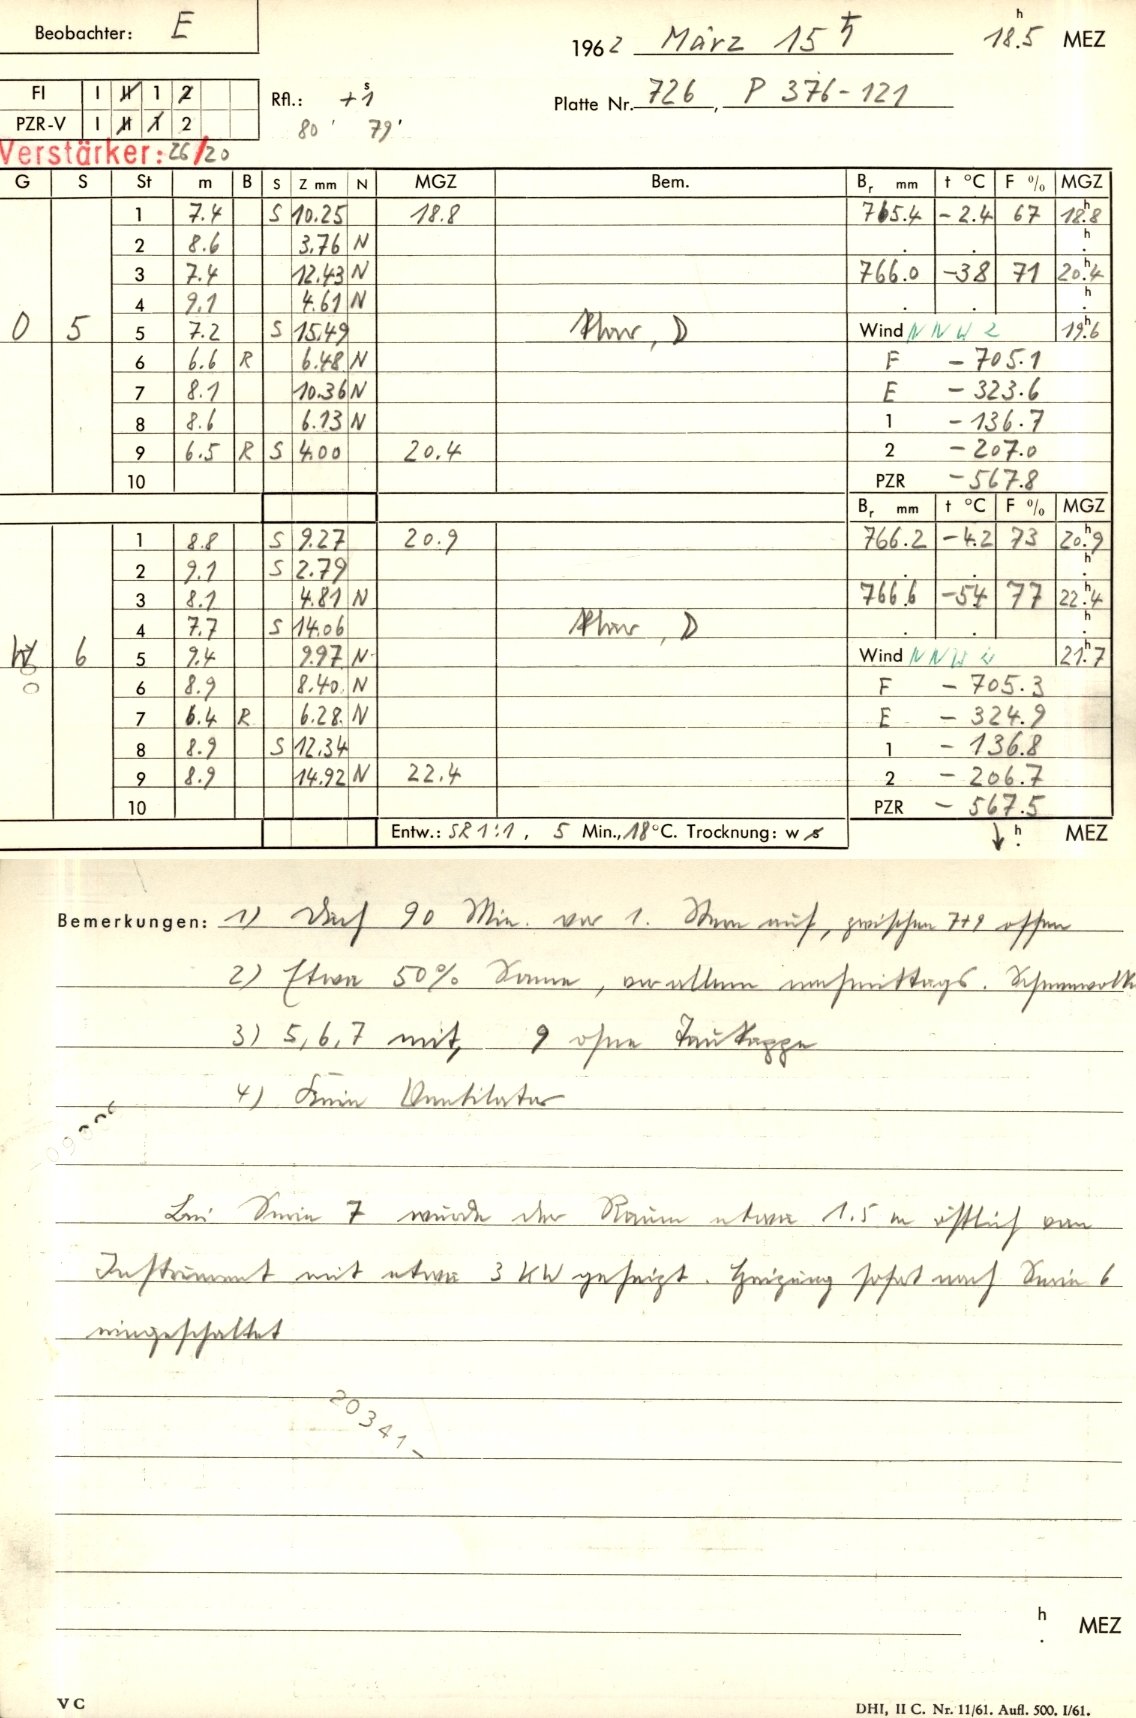 Beobachter: E
1962 März 15 ♄ 18.5 h MEZ
Fl I II 1 2
PZR-V I II 1 2
Rfl.: +1 s
80' 79'
Platte Nr. 726, P 376-121
Verstärker: 26/20
G S St m B S Z mm N MGZ Bem. Br mm t °C F % MGZ
1 7.4 S 10.25 18.8 765.4 -2.4 67 18.8 h
2 8.6 3.76 N
3 7.4 12.43 N 766.0 -3.8 71 20.4 h
4 9.1 4.61 N
O 5 5 7.2 S 15.49 klar, D Wind NNW 2 19.6 h
6 6.6 R 6.48 N F -705.1
7 8.1 10.36 N E -323.6
8 8.6 6.13 N 1 -136.7
9 6.5 R S 4.00 20.4 2 -207.0
10 PZR -567.8
Br mm t °C F % MGZ
1 8.8 S 9.27 20.9 766.2 -4.2 73 20.9 h
2 9.1 S 2.79
3 8.1 4.81 N 766.6 -5.4 77 22.4 h
4 7.7 S 14.06 klar, D
6 5 9.4 9.97 N Wind NNW 21.7 h
O 6 8.9 8.40 N F -705.3
7 6.4 R 6.28 N E -324.9
8 8.9 S 12.34 1 -136.8
9 8.9 14.92 N 22.4 2 -206.7
10 PZR -567.5
Entw.: SR 1:1, 5 Min., 18 °C. Trocknung: w s h MEZ
Bemerkungen: 1) Dach 90 Min. vor 1. Stern auf, zwischen 7+9 offen
2) Etwa 50% Sonne, vor allem nachmittags.
3) 5, 6, 7 mit, 9 ohne Taukappe
4) Kein Ventilator
Bei Serie 7 wurde der Raum etwa 1.5 m östlich vom
Instrument mit etwa 3 KW geheizt. Heizung sofort nach Serie 6
eingeschaltet
20341-
h MEZ
V C
DHI, II C. Nr. 11/61. Aufl. 500. I/61.